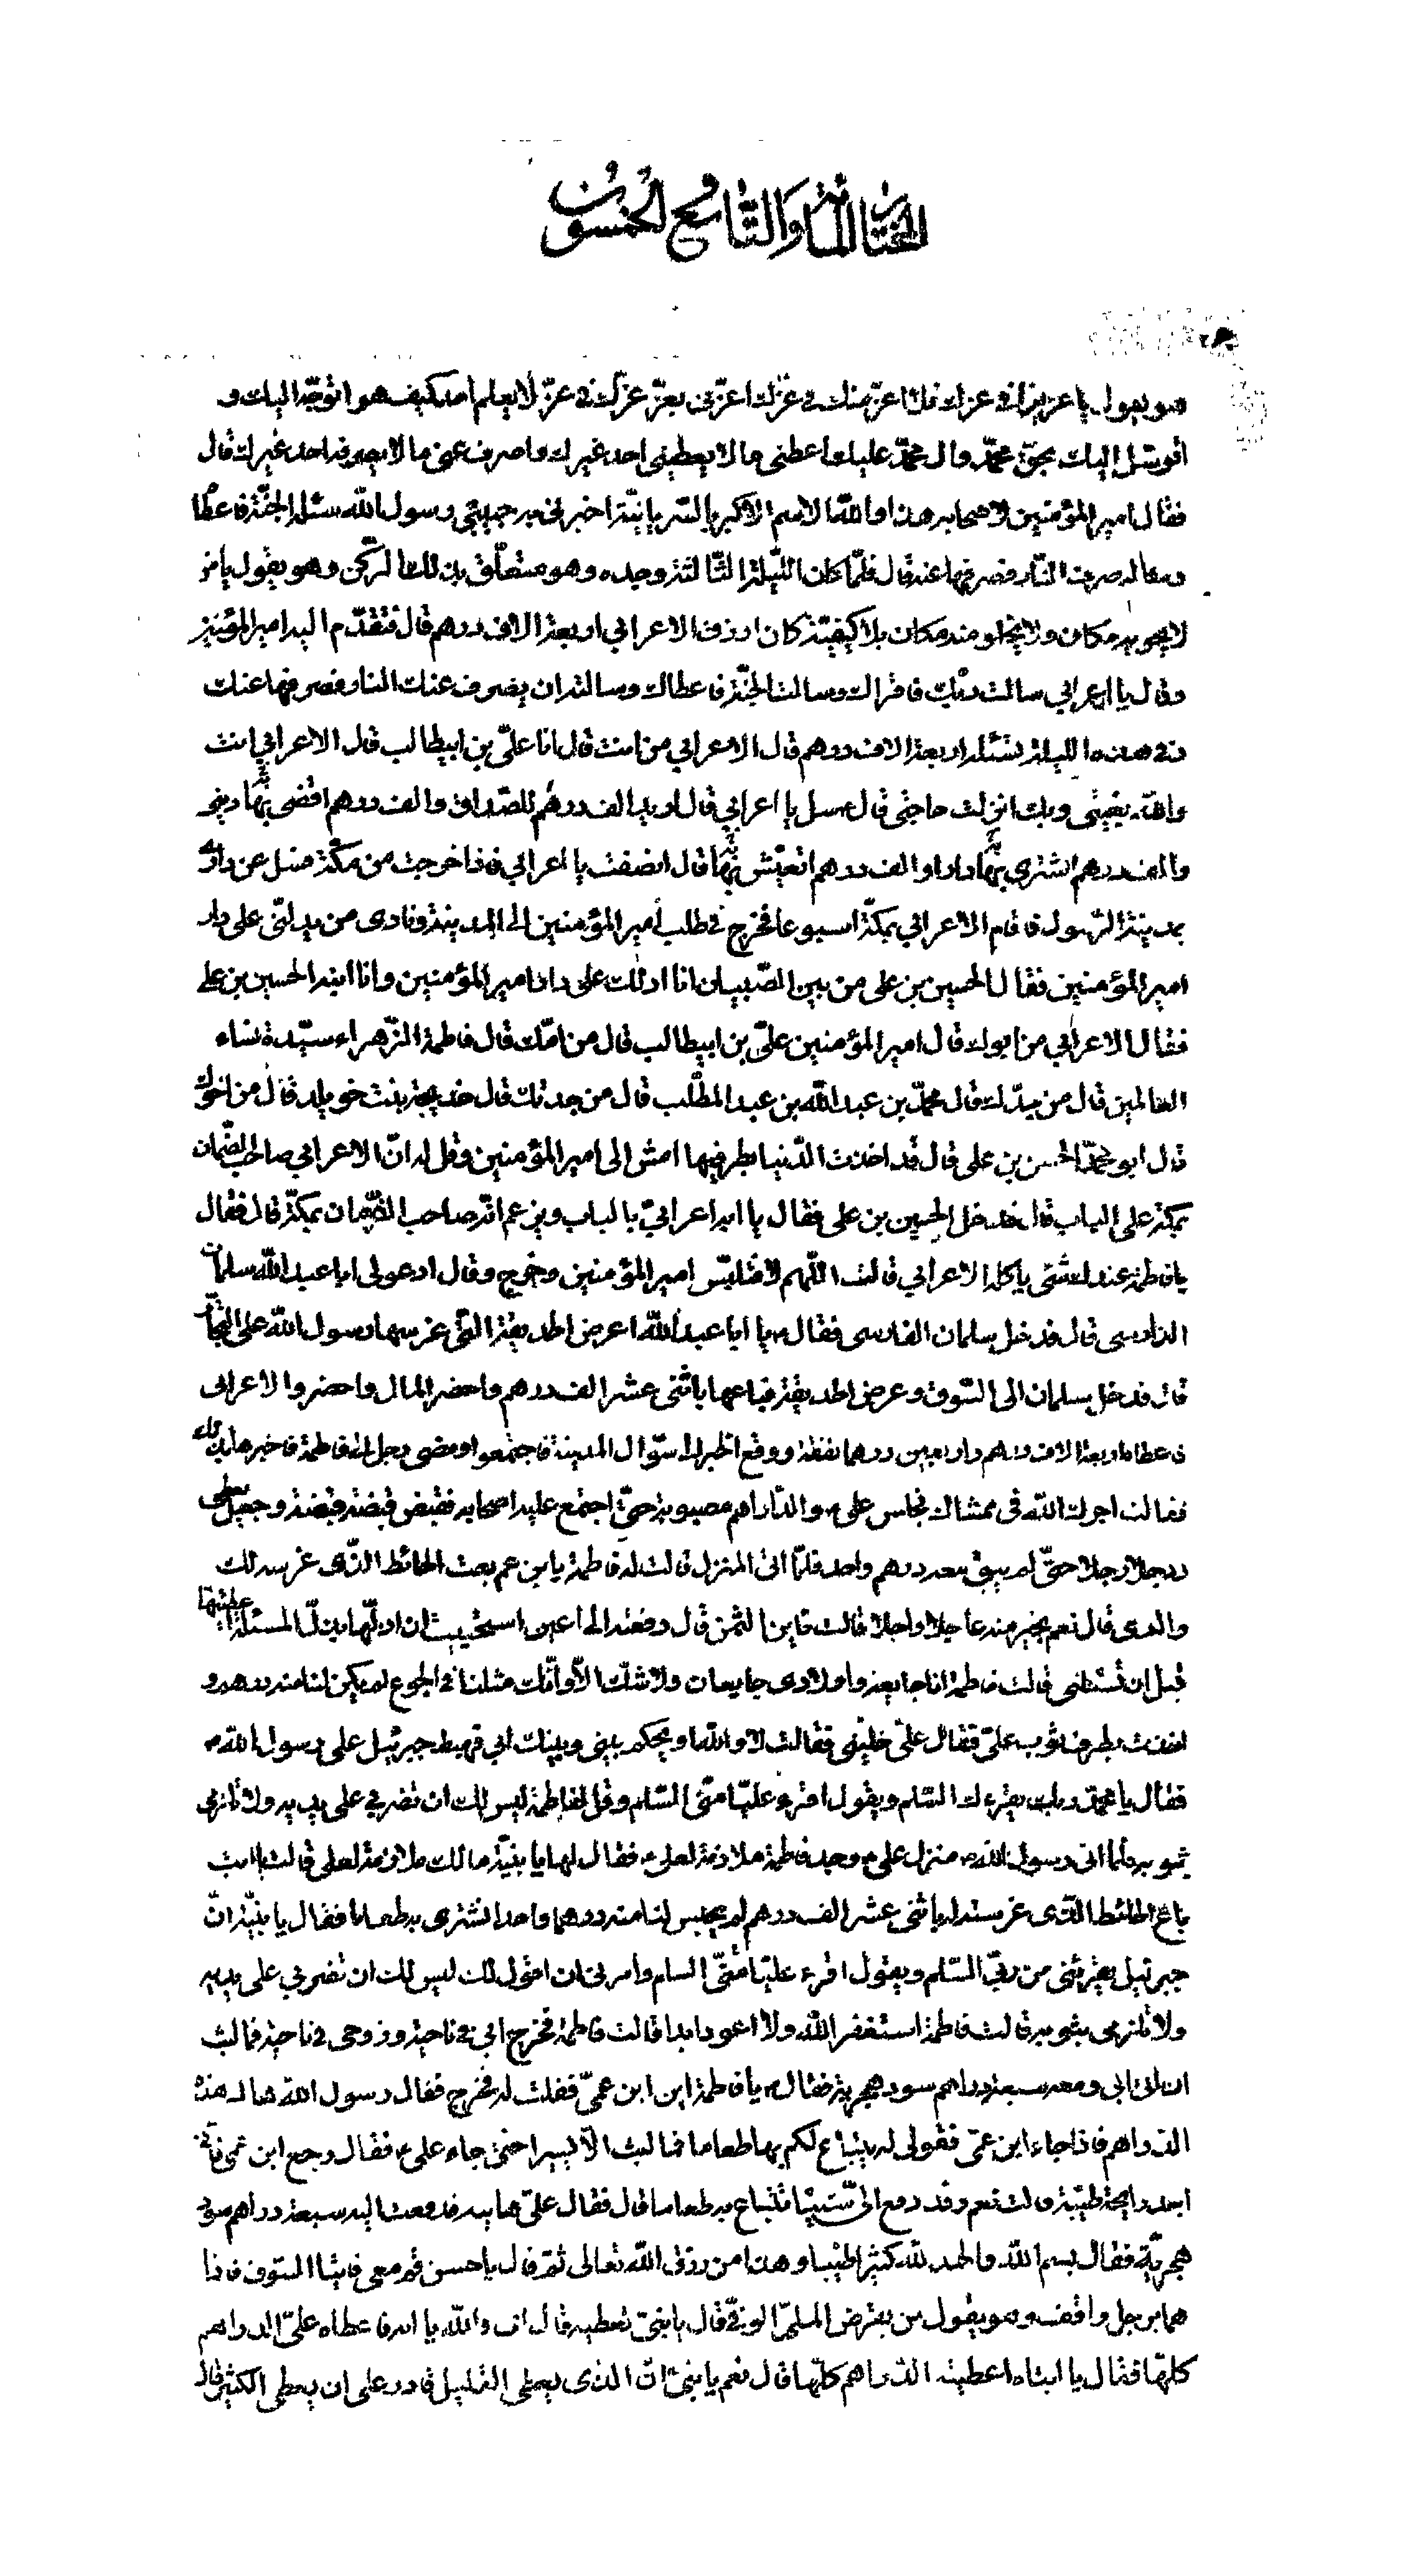 الخبر المائة والتاسع الخمسون
هو يقول يا عزيزا في عزك فلا اعز منك في عزك اعزني بعز عزك في عز لا يعلم احد كيف هو اتوجه اليك و
اتوسل اليك بحق محمد وال محمد عليك اعطني ما لا يعطيني احد غيرك واصرف عني ما لا يصرفه احد غيرك قال
فقال امير المؤمنين لاصحابه هذا والله الاسم الاكبر بالسريانية اخبرني به حبيبي رسول الله سئله الجنة فاعطا
وسئاله صرف النار فصرفها عنه قال فلما كان الليلة الثالثة وجده وهو متعلق بذلك الركن وهو يقول يا من
لا يحويه مكان ولا يخلو منه مكان بلا كيفية كان ارزق الاعرابي اربعة الاف درهم قال فتقدم اليه امير المؤمنين
وقال يا اعرابي سالت ربك فاقراك وسالت الجنة فاعطاك وسالته ان يصرف عنك النار فصرفها عنك
وفي هذه الليلة تسئله اربعة الاف درهم قال الاعرابي من انت قال انا علي بن ابيطالب قال الاعرابي انت
والله بغيتي وبك انزلت حاجتي قال سل يا اعرابي قال اريد الف درهم للصداق والف درهم اقضي بها ديني
والف درهم اشتري بها دارا والف درهم اتعيش بها قال انصفت يا اعرابي فاذا خرجت من مكة فسل عن داري
بمدينة الرسول فاقام الاعرابي بمكة اسبوعا فخرج في طلب امير المؤمنين الى المدينة ونادى من يدلني على دار
امير المؤمنين فقال الحسين بن علي من بين الصبيان انا ادلك على دار امير المؤمنين وانا ابنه الحسين بن علي
فقال الاعرابي من ابوك قال امير المؤمنين علي بن ابيطالب قال من امك قال فاطمة الزهراء سيدة نساء
العالمين قال من جدك قال محمد بن عبد الله بن عبد المطلب قال من جدتك قال خديجة بنت خويلد قال من اخوك
قال ابو محمد الحسن بن علي قال قد اخذت الدنيا بطرفيها امش الى امير المؤمنين وقل له ان الاعرابي صاحب الضمان
بمكة على الباب قال فدخل الحسين بن علي فقال يا ابه اعرابي بالباب ويزعم انه صاحب الضمان بمكة قال فقال
يا فاطمة عندك شئ ياكله الاعرابي قالت اللهم لا فتلبس امير المؤمنين وخرج وقال ادعو لي ابا عبد الله سلمان
الفارسي قال فدخل سلمان الفارسي فقال يا ابا عبد الله اعرض الحديقة التي غرسها رسول الله على التجار
قال فدخل سلمان الى السوق وعرض الحديقة فباعها باثنى عشر الف درهم واحضر المال واحضروا الاعرابي
فاعطاه اربعة الاف درهم واربعين درهما نفقة ووقع الخبر الى سؤال المدينة فاجتمعوا ومضى رجل الى فاطمة فاخبرها بذلك
فقالت اجرك الله في ممشاك فجلس علي والدراهم مصبوبة حتى اجتمع عليه اصحابه فقبض قبضة قبضة وجعل يعطي
رجلا رجلا حتى لم يبق معه درهم واحد فلما اتى المنزل قالت له فاطمة يا بن عم بعت الحائط الذي غرسه لك
والدي قال نعم بخير منه عاجلا واجلا قالت فاين الثمن قال دفعته الى اعين استحييت ان اذلها بذل المسئلة اعطيتها
قبل ان تسئلني قالت فاطمة انا جايعة واولادي جايعان ولا شك الا وانك مثلنا في الجوع لم يكن لنا منه درهم و
اخذت بطرف ثوب علي فقال علي خليني فقالت لا والله او يحكم بيني وبينك ابي فهبط جبرئيل على رسول الله
فقال يا محمد ربك يقرئك السلم ويقول اقرء عليا مني السلم وقل لفاطمة ليس لك ان تضربي على يديه ولا تلزمي
بثوبه فلما اتى رسول الله منزل علي وجد فاطمة ملازمة لعلي فقال لها يا بنية مالك ملازمة لعلي قالت يا ابت
باع الحائط الذي غرسته له باثنى عشر الف درهم لم يحبس لنا منه درهما واحدا نشتري به طعاما فقال يا بنية ان
جبرئيل يقرئني من ربي السلم ويقول اقرء عليا مني السلم وامرني ان اقول لك ليس لك ان تضربي على يديه
ولا تلزمي بثوبه قالت فاطمة استغفر الله ولا اعود ابدا قالت فاطمة فخرج ابي في ناحية وزوجي في ناحية فما لبث
ان اتى ابي ومعه سبعة دراهم سود هجرية فقال يا فاطمة اين ابن عمي فقلت له خرج فقال رسول الله هاك هذه
الدراهم فاذا جاء ابن عمي فقولي له يبتاع لكم بها طعاما فما لبث الا يسيرا حتى جاء علي فقال رجع ابن عمي فاني
اجد رايحة طيبة قالت نعم وقد دفع الي شيئا تبتاع به طعاما قال فقال علي هاتيه فدفعت اليه سبعة دراهم سود
هجرية فقال بسم الله والحمد لله كثيرا طيبا وهذا من رزق الله تعالى ثم قال يا حسن قم معي فاتيا السوق فاذا
هما برجل واقف وهو يقول من يقرض الملي الوفي قال يا بني تعطيه قال اي والله يا ابه فاعطاه علي الدراهم
كلها فقال يا ابتاه اعطيته الدراهم كلها قال نعم يا بني ان الذي يعطي القليل قادر على ان يعطي الكثير قال